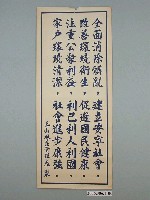 全面消除髒亂 建立安寧社會
改善環境衛生 促進國民健康
注重公眾利益 利己利人利國
家戶環境清潔 社會進步康強